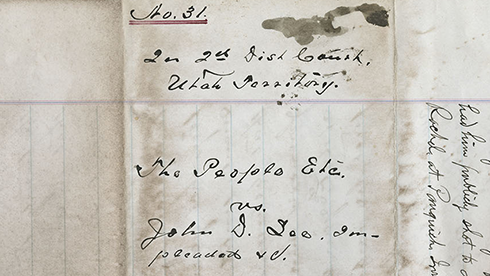 No. 31.
In 2d Dist Court,
Utah Territory.
The People Etc.
vs.
John D. Lee. Im-
pleaded &c.
had him publicly shot to d
at